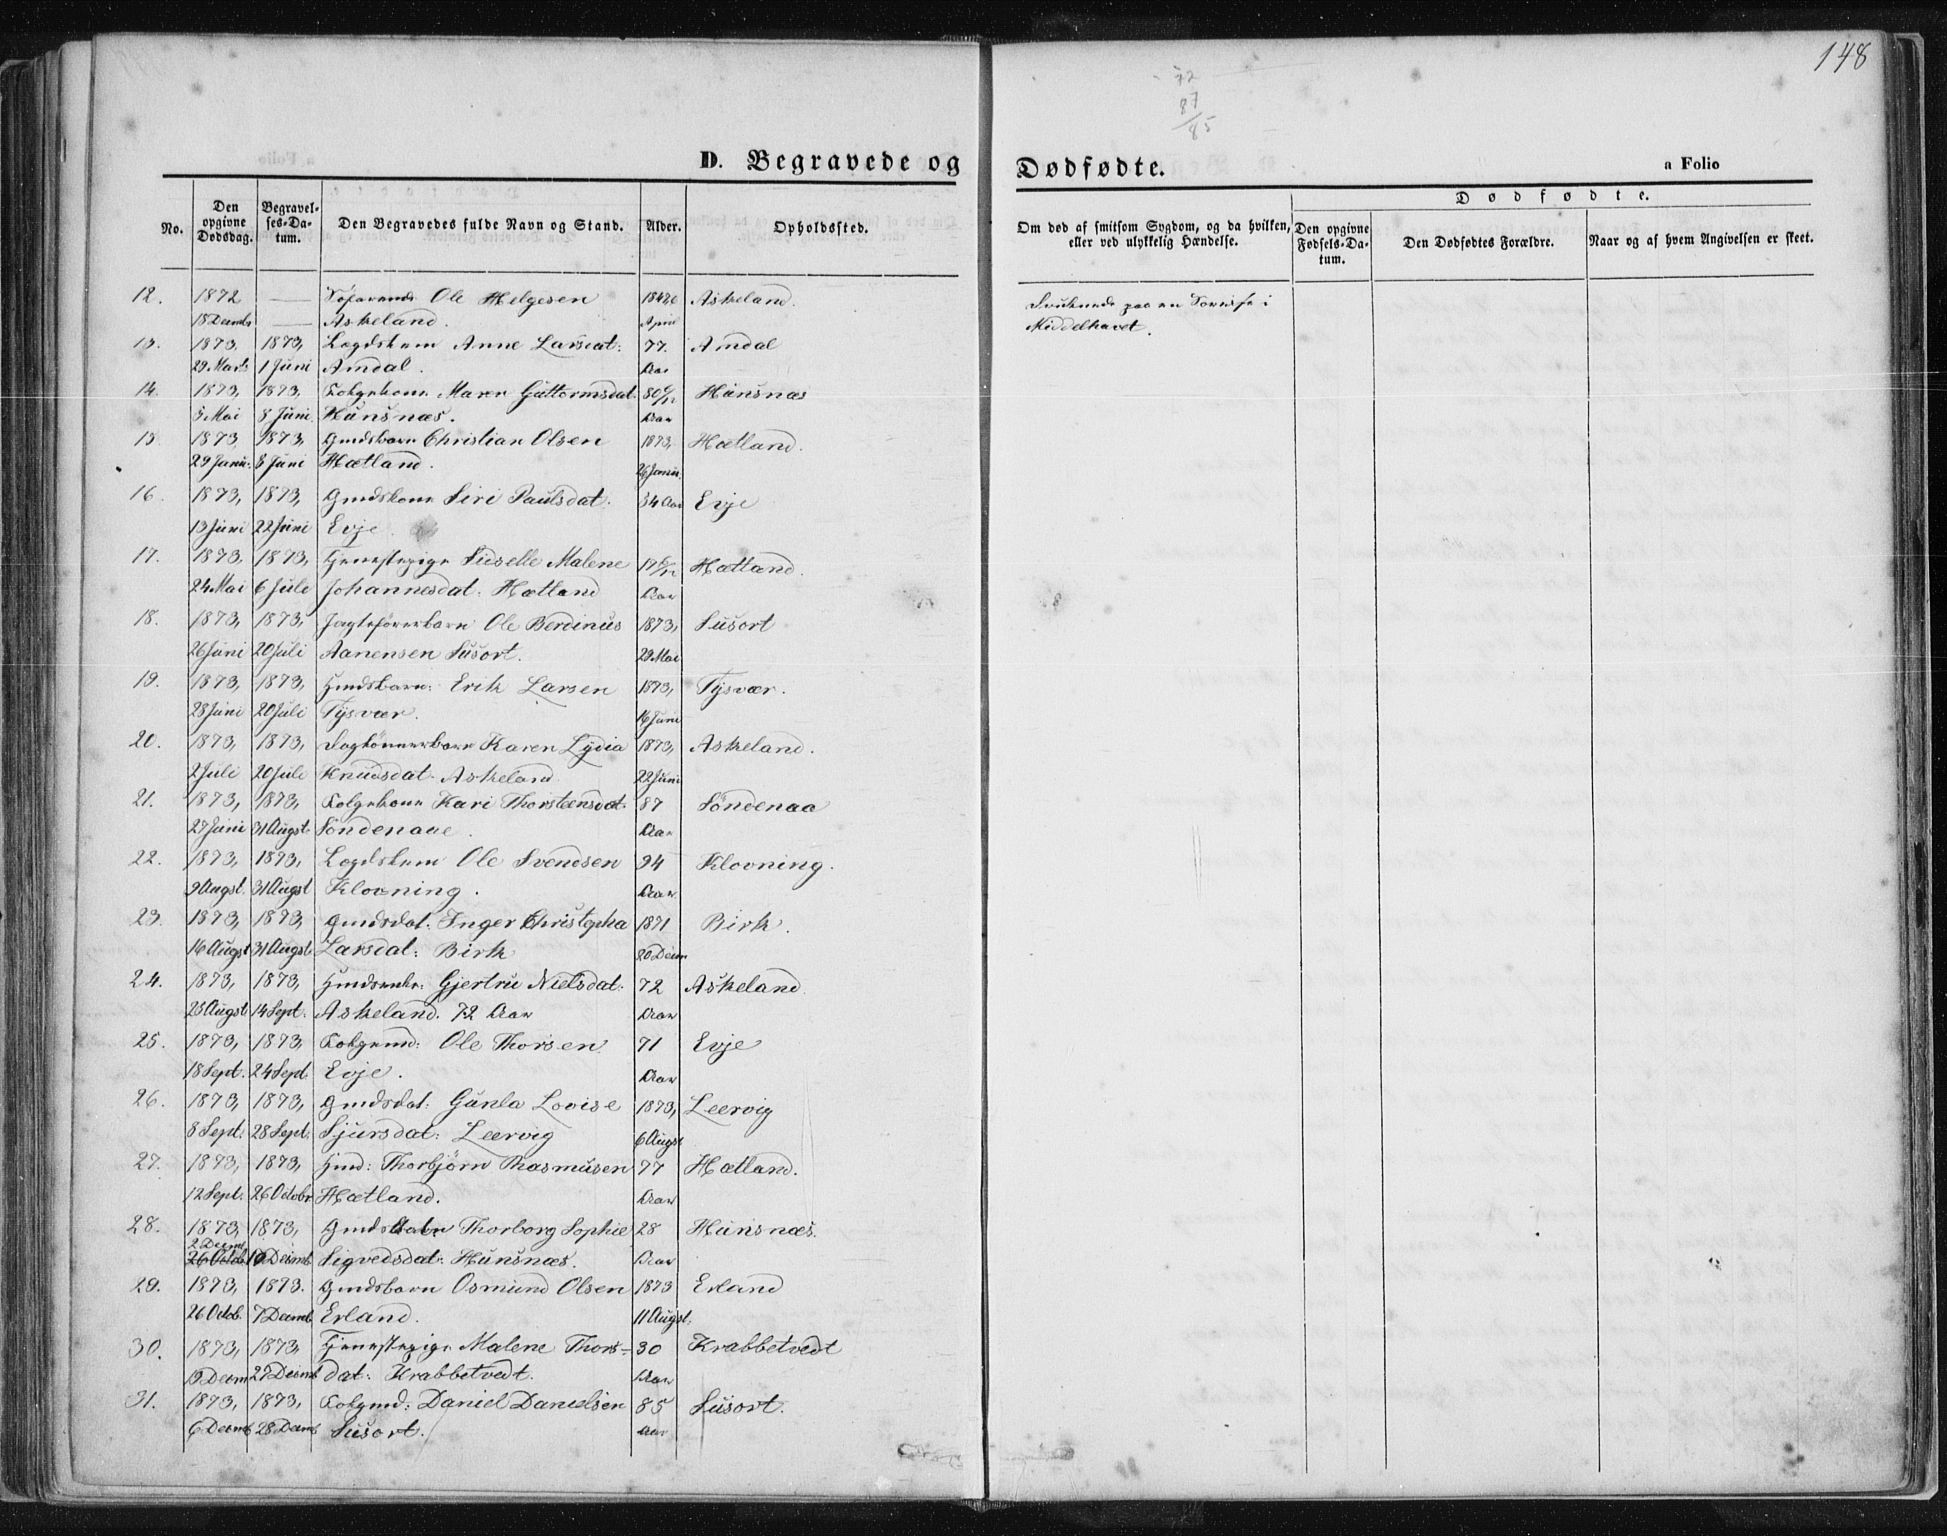 148
72
87
/85
D. Begravede og Dødfødte.
a Folio
No.
Den opgivne Dødsdag.
Begravelses-Datum.
Den Begravedes fulde Navn og Stand.
Alder.
Opholdssted.
Om død af smitsom Sygdom, og da hvilken, eller ved ulykkelig Hændelse.
Dødfødte.
Den opgivne Fødsels-Datum.
Den Dødfødtes Forældre.
Naar og af hvem Angivelsen er skeet.
12. 1872 — Søfarende Ole Helgesen Askeland.
18 Decmb — Askeland. April
Middelhavet.
13. 1873, 1873, Lægdslem Anne Larsdat: 77. Amdal
29 Marts 1 Juni Amdal. Aar
14. 1873, 1873, Folgekone Maren Guttormsdat. 80 6/12 Hunsnæs
5 Mai 8 Juni Hunsnæs. Aar
15 1873, 1873, Gmdsbarn Christian Olsen 1873, Hætland.
29 Janu: 8 Juni Hætland. 26 Janu.
16. 1873, 1873, Gmdskone Siri Paulsdat. 34 Aar Evje
13 Juni 22 Juni Evje.
17. 1873, 1873, Tjenestepige Sidselle Malene 19 6/12 Hætland.
24 Mai 6 Juli Johannesdat: Hætland Aar
18. 1873, 1873, Jagteførerbarn Ole Berdinus 1873, Susort
26 Juni 20 Juli Aanensen Susort. 29 Mai
19. 1873, 1873, Hmdsbarn: Erik Larsen 1873, Tysvær.
28 Juni 20 Juli Tysvær. 16 Juni
20. 1873, 1873, Karen Lydia 1873, Askeland.
2 Juli 20 Juli Knudsdat. Askeland 22 Juni
21. 1873, 1873, Folgekone Kari Thorsteensdat. 87 Søndenaa
27 Juni 31 Augst. Søndenaae. Aar
22. 1873, 1873, Lægdslem Ole Svendsen 94 Klovning.
9 Augst. 31 Augst Klovning. Aar
23. 1873, 1873, Gmdsdat. Inger Christopha 1871 Birk.
16 Augst 31 Augst. Larsdat: Birk 20 Decm
24. 1873, 1873, Hmdsenke: Gjertru Nielsdat. 72 Askeland.
23 Augst 14 Sept. Askeland. 72 Aar Aar
25. 1873, 1873, Folgemd: Ole Thorsen 71 Evje
18 Sept. 24 Sept. Evje. Aar
26. 1873, 1873, Gmdsdat: Gunla Lovise 1873, Leervig
8 Sept. 28 Sept. Sjursdat: Leervig 6 Augst
27. 1873, 1873, Hmd: Thorbjørn Rasmusen 77 Hætland.
12 Sept. 26 Octobr Hætland. Aar
28. 1873, 1873, Thorborg Sophie 28 Hunsnæs.
2 Decmb
26 Octob. Decmb Sigvedsdat: Hunsnæs. Aar
29. 1873, 1873. Gmdsbarn Osmund Olsen 1873 Erland
26 Octob. 7 Decmb Erland. 11 Augst.
30. 1873, 1873, Tjenestepige Malene Thors= 30 Krabbetvedt
Decm 27 Decmb dat: Krabbetvedt. Aar
31. 1873, 1873, Folgmd: Daniel Danielsen 85 Susort.
6 Decmb 28 Decmb Susort. Aar